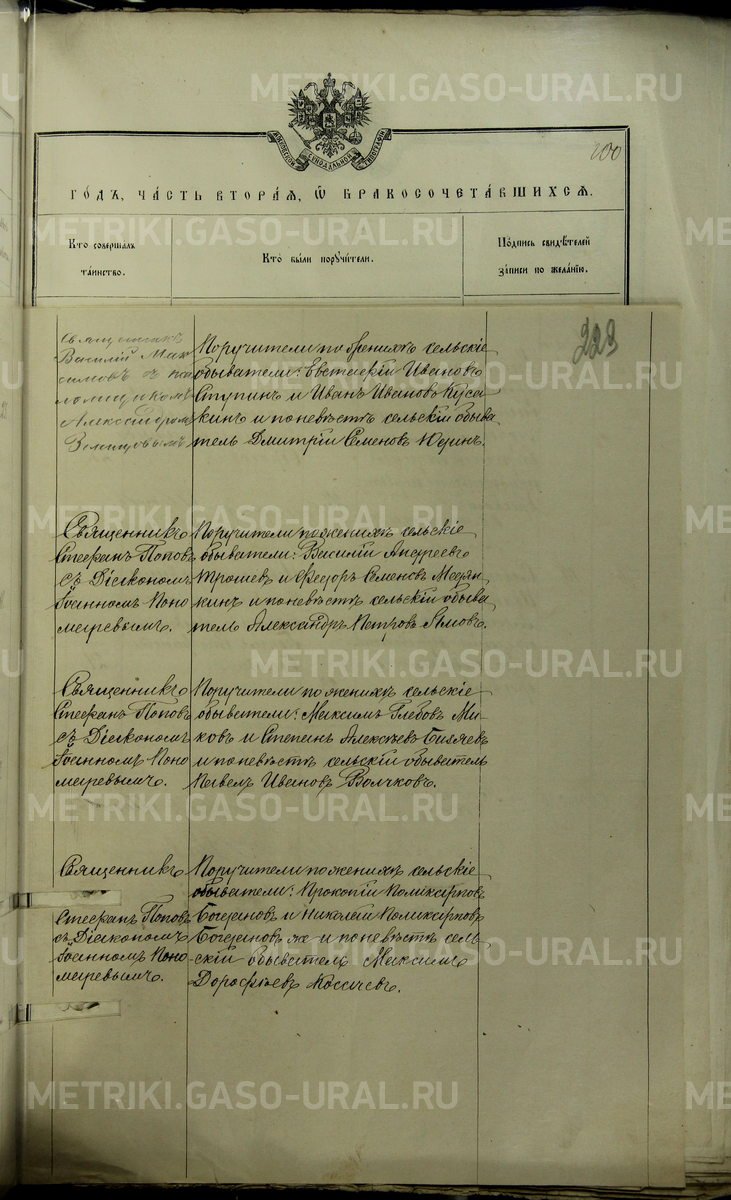 METRIKI.GASO-URAL.RU
200
МОСКОВСКОЙ СѴНОДАЛЬНОЙ ТИПОГРАФІИ
ГОДЪ, ЧАСТЬ ВТОРАЯ, Ѿ БРАКОСОЧЕТАВШИХСЯ.
Кто совершалъ
таинство.
Кто были поручители.
Подпись свидѣтелей
записи по желанію.
223
Священникъ
Василій Мак
симовъ с пса
ломщикомъ
Александромъ
Поручители по женихѣ сельскіе
обыватели: Евстегній Ивановъ
Ступинъ и Иванъ Ивановъ Куса
кинъ и по невѣстѣ сельскій обыва
тель Дмитрій Семеновъ Юдинъ.
Священникъ
Стефанъ Поповъ
съ Діакономъ
Іоанномъ Поно
маревымъ.
Поручители по женихѣ сельскіе
обыватели: Василій Андреевъ
Трошевъ и Федоръ Семеновъ Медян
кинъ и по невѣстѣ сельскій обыва
тель Александръ Петровъ
Священникъ
Стефанъ Поповъ
съ Діакономъ
Іоанномъ Поно
маревымъ.
Поручители по женихѣ сельскіе
обыватели: Максимъ Глебовъ Ми-
ковъ и Степанъ Алексѣевъ Бизяевъ
и по невѣстѣ сельскій обыватель
Павелъ Ивановъ Волчковъ.
Священникъ
Стефанъ Поповъ
съ Діакономъ
Іоанномъ Поно
маревымъ.
Поручители по женихѣ сельскіе
обыватели: Прокопій Поликарповъ
Богдановъ и Николай Поликарповъ
Богдановъ же и по невѣстѣ сель-
скій обыватель Максимъ
Дорофѣевъ Косачевъ.